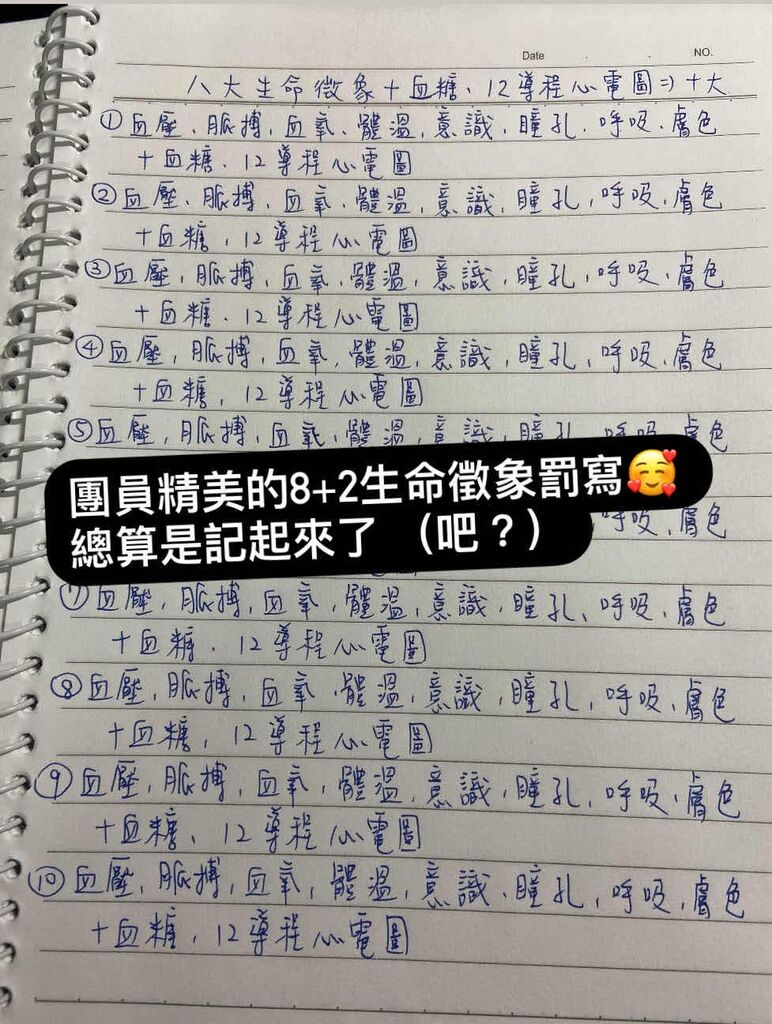 Date NO.
八大生命徵象+血糖、12導程心電圖⇒十大
①血壓、脈搏,血氧、體溫,意識,瞳孔,呼吸,膚色
+血糖、12導程心電圖
②血壓、脈搏,血氧,體溫,意識,瞳孔,呼吸,膚色
+血糖,12導程心電圖
③血壓,脈搏,血氧,體溫,意識,瞳孔,呼吸,膚色
+血糖、12導程心電圖
④血壓,脈搏,血氧,體溫,意識,瞳孔,呼吸,膚色
+血糖,12導程心電圖
⑤血壓,脈搏,血氧,體溫,意識,瞳孔,呼吸,膚色
團員精美的8+2生命徵象罰寫🥰
呼吸,膚色
總算是記起來了 (吧?)
⑦血壓,脈搏,血氧,體溫,意識,瞳孔、呼吸,膚色
+血糖、12導程心電圖
⑧血壓,脈搏,血氧,體溫,意識,瞳孔,呼吸,膚色
+血糖,12導程心電圖
⑨血壓,脈搏,血氧,體溫,意識,瞳孔,呼吸,膚色
+血糖,12導程心電圖
⑩血壓,脈搏,血氧,體溫,意識,瞳孔,呼吸,膚色
+血糖、12導程心電圖